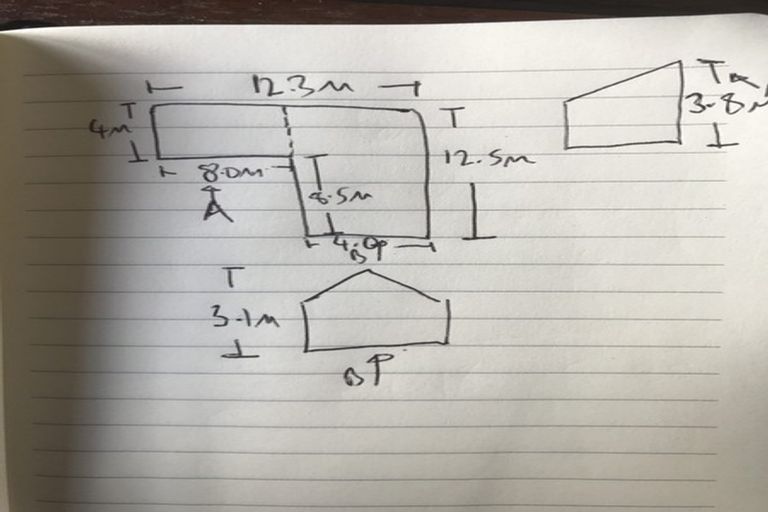 12.3m
4m
3.8m
12.5m
8.0m
A
8.5m
B
3.1m
B